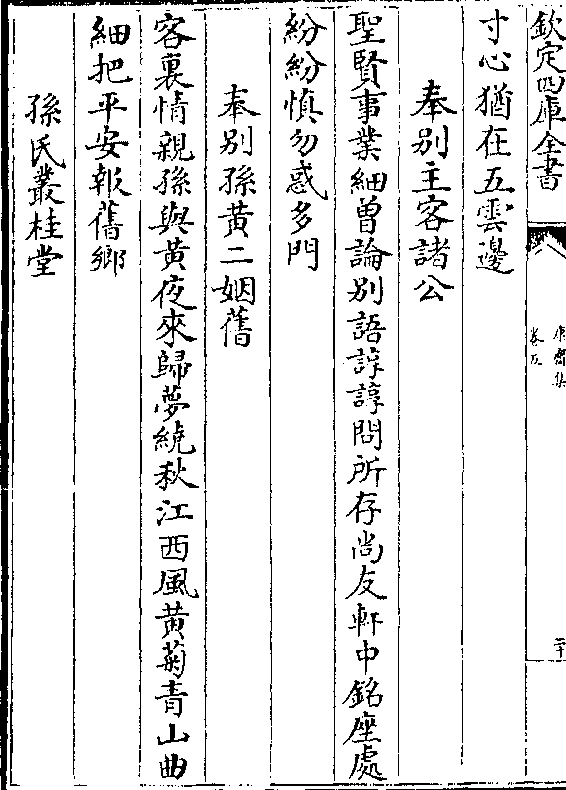 欽定四庫全書
康齋集
卷五
二十
寸心猶在五雲邊
奉别主客諸公
聖賢事業細曽論别語諄諄問所存尚友軒中銘座處
紛紛慎勿惑多門
奉别孫黄二姻舊
客裏情親孫與黄夜來歸夢繞秋江西風黄菊青山曲
細把平安報舊鄉
孫氏叢桂堂